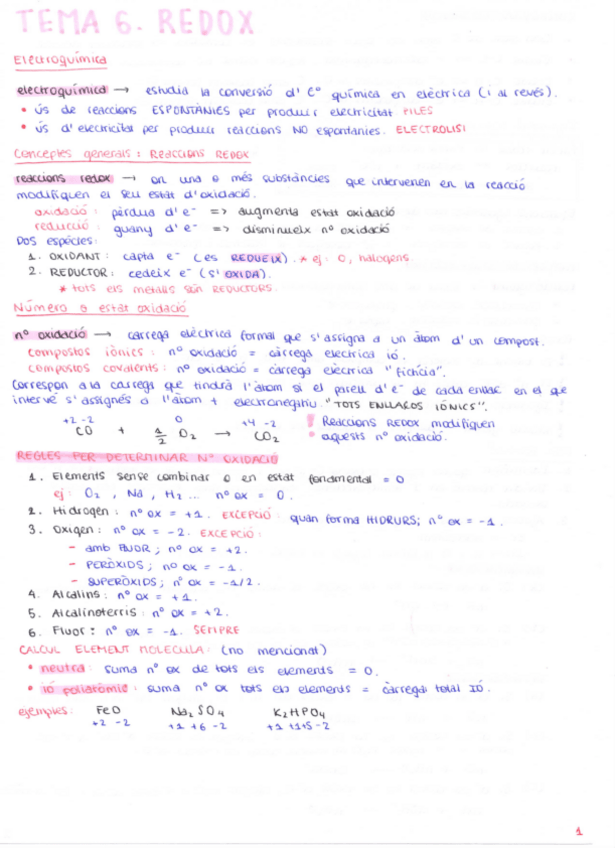 TEMA 6. REDOX
Electroquímica
electroquímica → estudia la conversió d' Eº química en elèctrica (i al revés).
• ús de reaccions ESPONTÀNIES per produir electricitat PILES
• ús d'electricitat per produir reaccions NO espontanies. ELECTROLISI
Conceptes generals: Reaccions REDOX
reaccions redox → on una o més substàncies que intervenen en la reacció
modifiquen el seu estat d'oxidació.
oxidació: pèrdua d'e⁻ => augmenta estat oxidació
reducció: guany d'e⁻ => disminueix nº oxidació
Dos espècies:
1. OXIDANT: capta e⁻ (es REDUEIX). * ej: O, halogens.
2. REDUCTOR: cedeix e⁻ (s'OXIDA).
* tots els metalls són REDUCTORS.
Número o estat oxidació
nº oxidació → càrrega elèctrica formal que s'assigna a un àtom d'un compost.
compostos iònics: nº oxidació = càrrega electrica ió.
compostos covalents: nº oxidació = càrrega elèctrica "fictícia".
Correspon a la càrrega que tindrà l'àtom si el parell d'e⁻ de cada enllaç en el que
intervé s'assignés a l'àtom + electronegatiu. "TOTS ENLLAÇOS IÒNICS".
+2 -2 0 +4 -2
CO + 1/2 O₂ → CO₂
! Reaccions REDOX modifiquen
aquests nº oxidació.
REGLES PER DETERMINAR Nº OXIDACIÓ
1. Elements sense combinar o en estat fonamental = 0
ej: O₂, Na, H₂... nº ox = 0.
2. Hidrogen: nº ox = +1. EXCEPCIÓ: quan forma HIDRURS; nº ox = -1.
3. Oxigen: nº ox = -2. EXCEPCIÓ:
- amb FLUOR; nº ox = +2.
- PERÒXIDS; nº ox = -1.
- SUPERÒXIDS; nº ox = -1/2.
4. Alcalins: nº ox = +1.
5. Alcalinoterris: nº ox = +2.
6. Fluor: nº ox = -1. SEMPRE
CÀLCUL ELEMENT MOLECULA: (no mencionat)
• neutra: suma nº ox de tots els elements = 0.
• ió poliatòmic: suma nº ox tots els elements = càrrega total IÓ.
exemples: FeO Na₂SO₄ K₂HPO₄
+2 -2 +1 +6 -2 +1 +1+5 -2
1